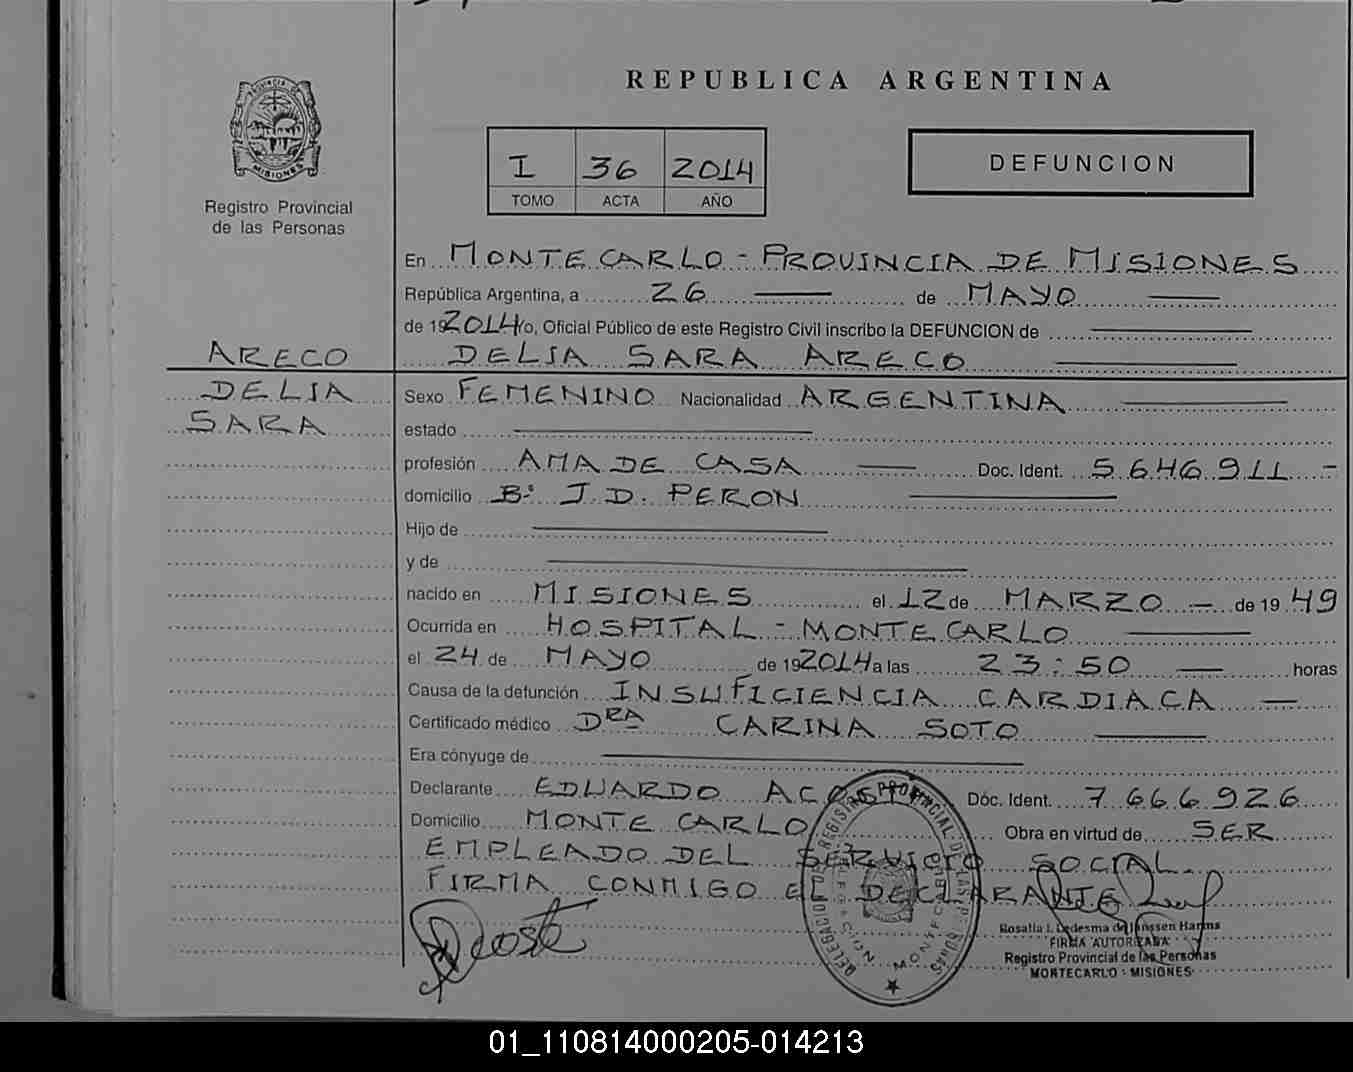 REPUBLICA ARGENTINA
PROVINCIA DE
MISIONES
Registro Provincial
de las Personas
I 36 2014
TOMO ACTA AÑO
DEFUNCION
En MONTECARLO - PROVINCIA DE MISIONES
República Argentina, a 26 de MAYO
de 192014 yo, Oficial Público de este Registro Civil inscribo la DEFUNCION de
ARECO
DELIA
SARA
DELIA SARA ARECO
Sexo FEMENINO Nacionalidad ARGENTINA
estado
profesión AMA DE CASA Doc. Ident. 5.646.911 -
domicilio B° J.D. PERON
Hijo de
y de
nacido en MISIONES el 12 de MARZO - de 19 49
Ocurrida en HOSPITAL - MONTECARLO
el 24 de MAYO de 192014 a las 23:50 horas
Causa de la defunción INSUFICIENCIA CARDIACA
Certificado médico DRA CARINA SOTO
Era cónyuge de
Declarante EDUARDO ACOSTA Dóc. Ident. 7.666.926
Domicilio MONTE CARLO Obra en virtud de SER
EMPLEADO DEL SERVICIO SOCIAL.
FIRMA CONMIGO EL DECLARANTE
Acosta
REGISTRO PROVINCIAL DE LAS PERSONAS
Rosalia I. Ledesma de Janssen Harms
FIRMA AUTORIZADA
Registro Provincial de las Personas
MONTECARLO - MISIONES
01_110814000205-014213